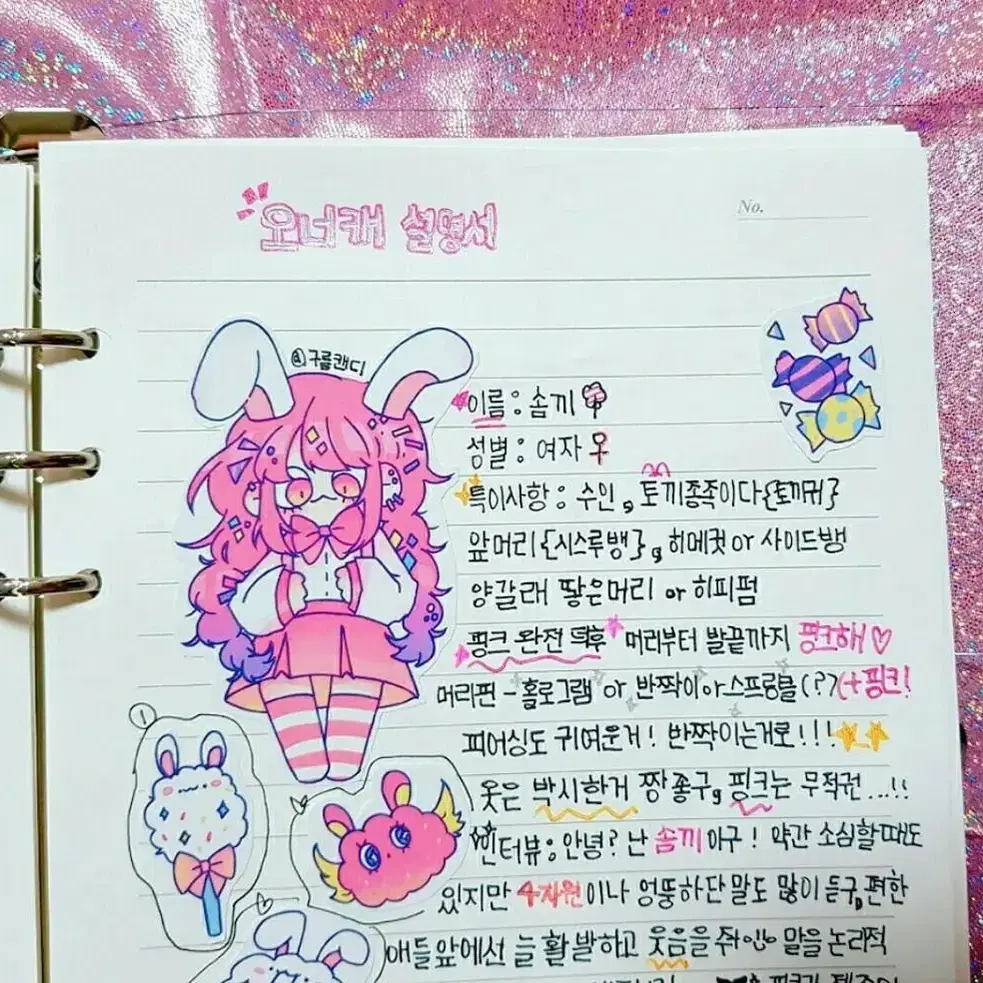 오너캐 설명서
No.
@구름캔디
이름 : 솜끼
성별 : 여자 우
특이사항 : 수인, 토끼종족이다{토끼귀}
앞머리{시스루뱅}, 히메컷 or 사이드뱅
양갈래 땋은머리 or 히피펌
핑크 완전 덕후 머리부터 발끝까지 핑크해♡
머리핀 - 홀로그램 or 반짝이 or 스프링클(??)(+핑크!
피어싱도 귀여운거! 반짝이는거로!!!
옷은 박시한거 짱 좋구, 핑크는 무적권...!!
인터뷰 : 안녕? 난 솜끼 야구! 약간 소심할때도
①
있지만 4차원이나 엉뚱하단 말도 많이 듣구, 편한
애들앞에선 늘 활발하고 웃음을 줘 말을 논리적